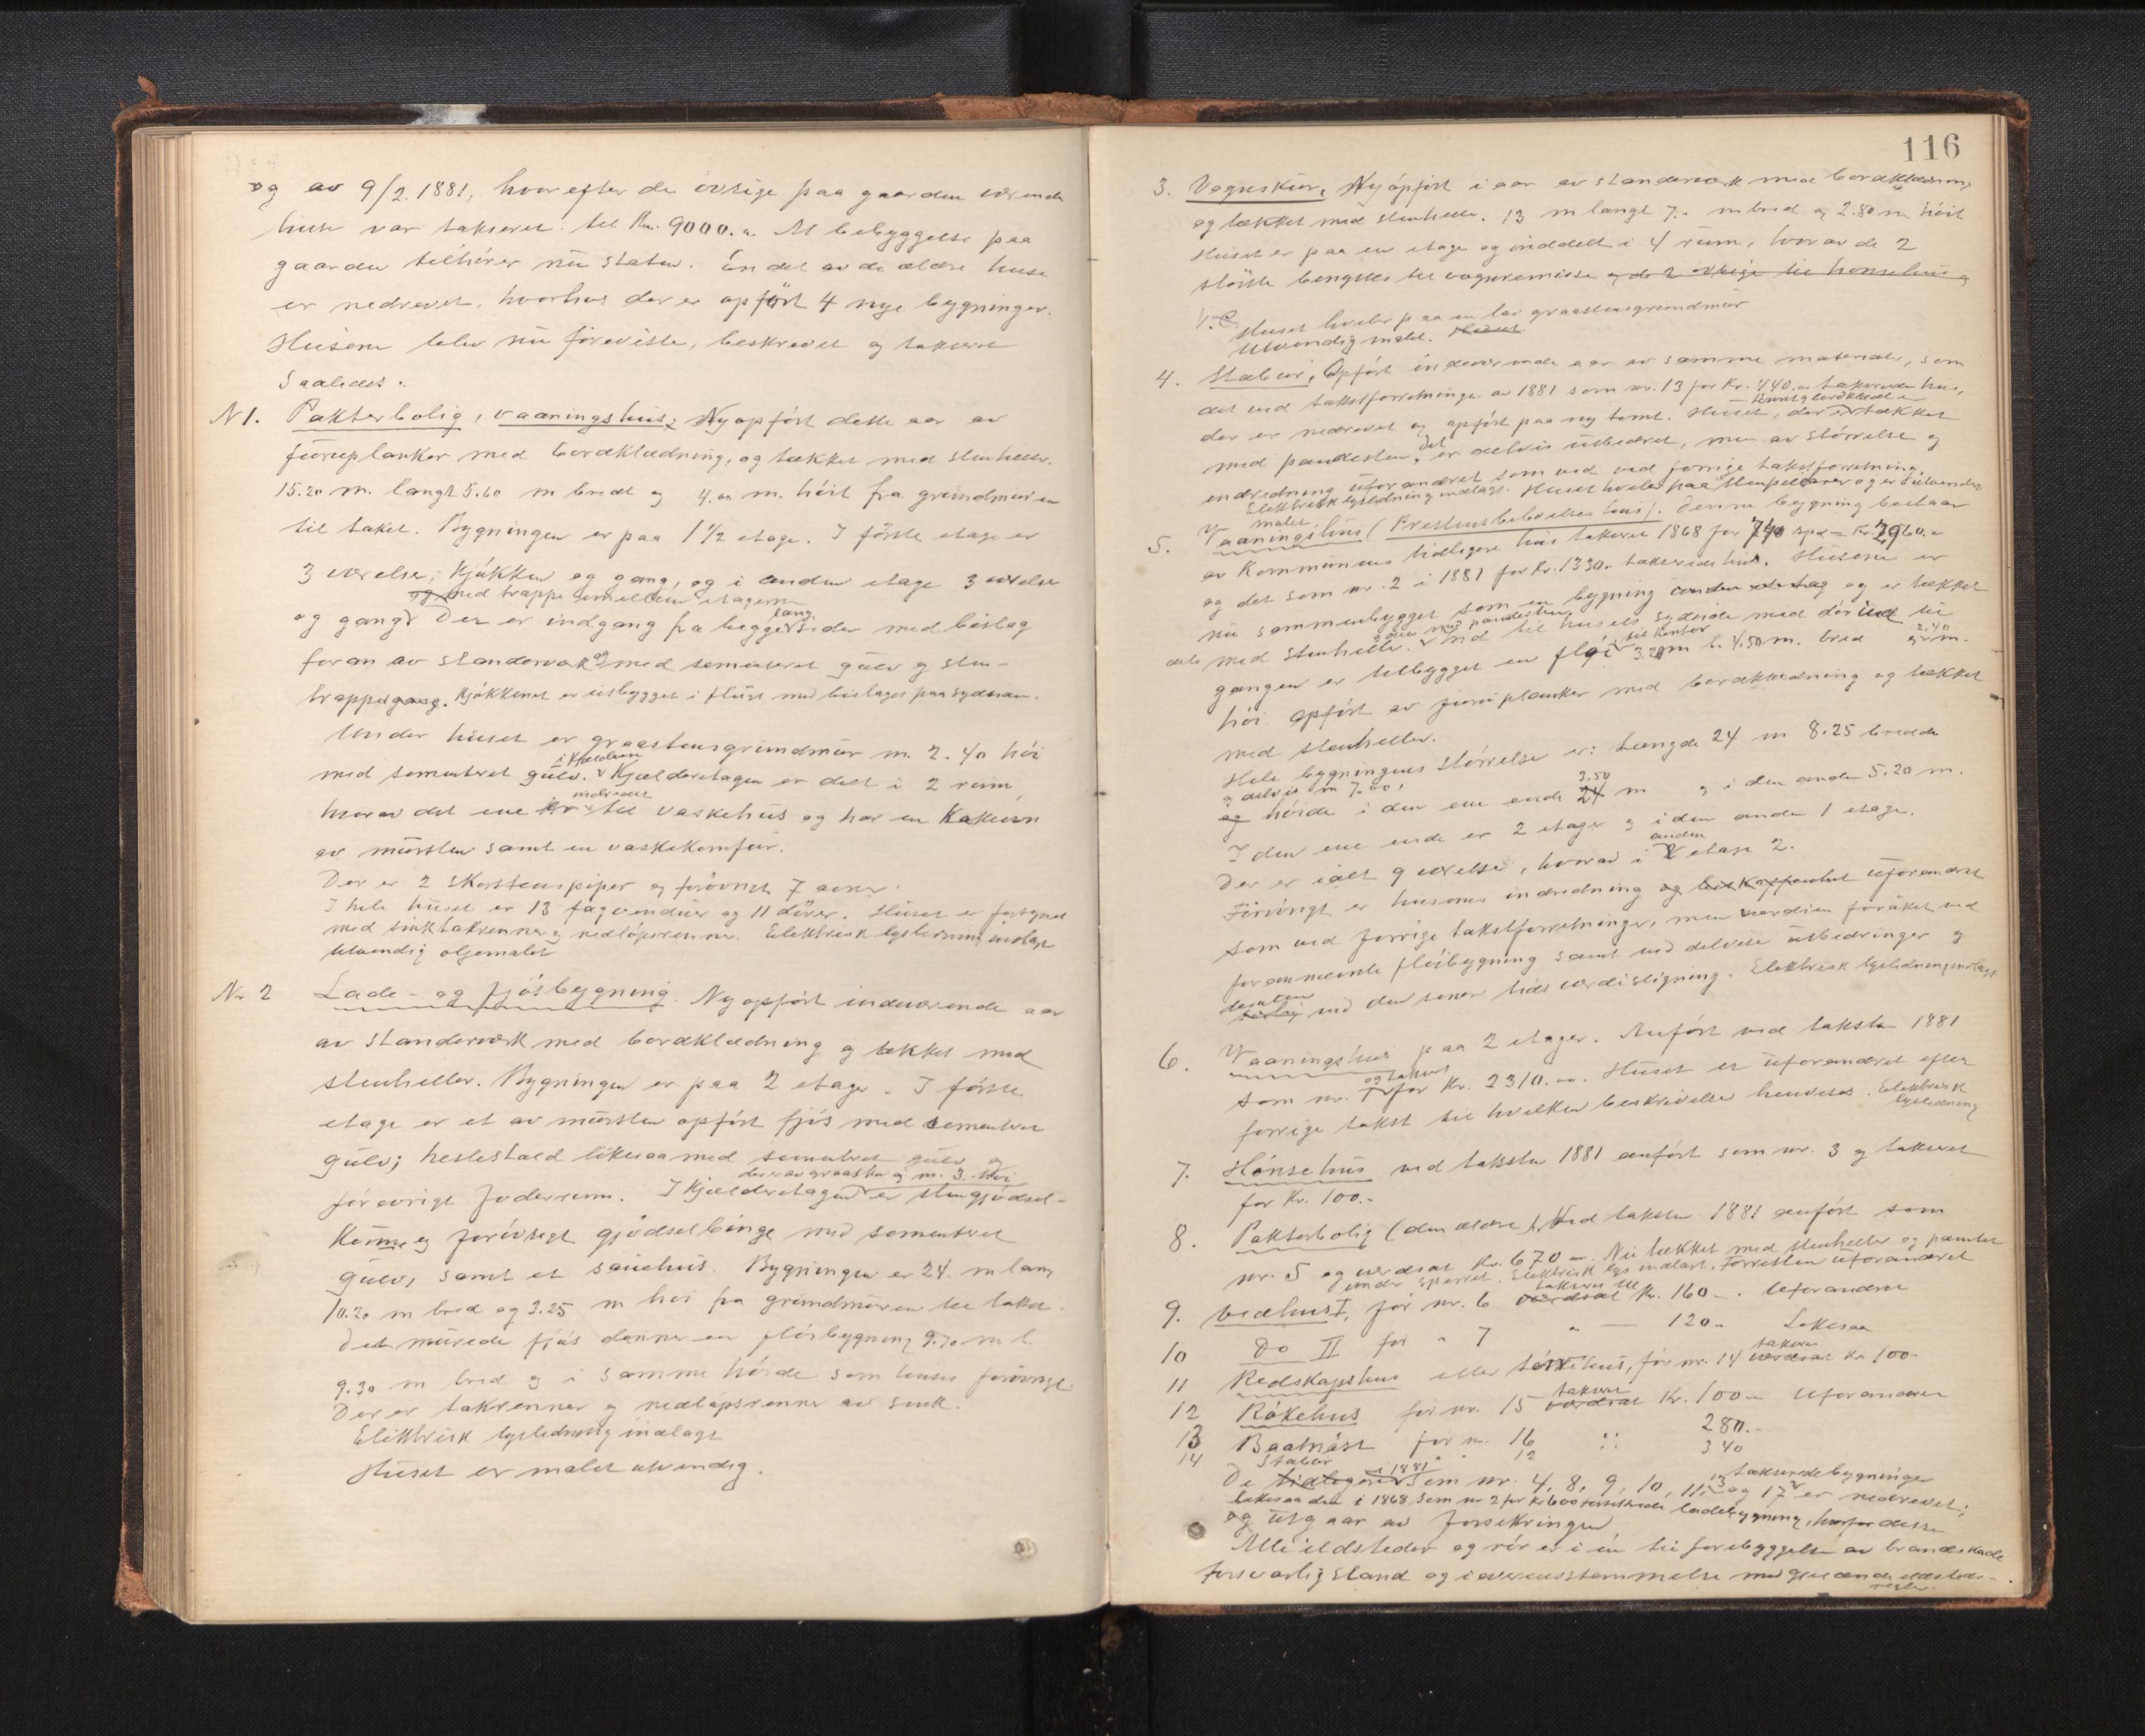 og av 9/2.1881, hvorefter de øvrige paa gaarden værende
huse var takseret til Kr. 9000.- Al bebyggelse paa
gaarden tilhører nu staten. En del av de ældre huse
er nedrevet, hvorhos der er opført 4 nye bygninger.
Husene blev nu foreviste, beskrevet og takseret
saaledes:
N 1. Pakterbolig, vaaningshus; Nyopført dette aar av
furuplanker med bordklædning, og tækket med stenheller.
15.20 m. langt 5.60 m bredt og 4.00 m. høit fra grundmuren
til taket. Bygningen er paa 1 1/2 etage. I første etage er
3 værelser, kjøkken og gang, og i anden etage 3 værelser
og med trappe imellem etagerne
og gang. Der er indgang fra begge langsider med bislag
foran av standerværk og med sementeret gulv og sten-
trappegang. Kjøkkenet er utbygget i fløist med bislaget paa sydsiden.
Under huset er graastensgrundmur m. 2.40 høi
med sementeret gulv i kjælderen. Kjælderetagen er delt i 2 rum,
hvorav det ene er indredet til vaskehus og har en bakerovn
av mursten samt en vaskekomfur.
Der er 2 skorstenspiper og forøvrigt 7 ovner.
I hele huset er 13 fag vinduer og 11 døre. Huset er forsynet
med sinktakrenner og nedløpsrenner. Elektrisk lysledning indlagt
Utvendig oljemalet
Nr 2 Lade- og fjøsbygning. Nyopført indeværende aar
av standerværk med bordklædning og tækket med
stenheller. Bygningen er paa 2 etager. I første
etage er et av mursten opført fjøs med sementeret
gulv; hestestald likesaa med sementeret gulv og
forøvrigt foderrum. I kjælderetagen der er av graasten og m. 3. høi er stengjødsel-
kumme og forøvrigt gjødselbinge med sementeret
gulv, samt et sauehus. Bygningen er 24. m lang
10.20 m bred og 3.25 m høi fra grundmuren til taket.
Det murede fjøs danner en fløibygning 9.70 m l.
9.30 m bred og i samme høide som huset forøvrigt.
Der er takrenner og nedløpsrenner av sink.
Elektrisk lysledning indlagt
Huset er malet utvendig.
116
3. Vognskur, Nyopført i aar av standerværk med bordklædning
og tækket med stenheller. 13 m langt 7.- m bred og 2.80 m høit
Huset er paa en etage og inddelt i 4 rum, hvorav de 2
største benyttes til vognremisse og de 2 øvrige til hønsehus og
V.C. Huset hviler paa en lav graastensgrundmur
Utvendig malet. Huset
4. Stabur, Opført indeværende aar av samme materialer, som
det ved takstforretningen av 1881 som nr. 13 for Kr. 440.00 takserede hus,
der er nedrevet og opført paa ny tomt. Huset, der er tækket
med pandesten, det er delvis utbedret, men av størrelse og
indredning uforandret som ved forrige takstforretning.
Elektrisk lysledning indlagt. Huset hviler paa stenpilarer og er utvendig
malet.
5. Vaaningshus (Prestens beboelseshus). Denne bygning bestaar
av kommunens tidligere hus takseret 1868 for 740 spd = Kr. 2960.-
og det som nr. 2 i 1881 for Kr. 1330.- takserede hus. Husene er
nu sammenbygget som en bygning under et tag og er tækket
dels med stenheller og dels med pandesten. Ved til husets sydside med dør ind til
gangen er tilbygget en fløi til kontor 3.20 m l. 4.50 m. bred og 2.40 m.
høi. Opført av furuplanker med bordklædning og tækket
med stenheller.
Hele bygningens størrelse er: længde 24 m 8.25 bredde
og delvis m 7.00,
og høide i den ene ende 3.50 m og i den anden 5.20 m.
I den ene ende er 2 etager og i den anden 1 etage.
Der er ialt 9 værelser, hvorav i anden etage 2.
Forøvrigt er husenes indredning uforandret
som ved forrige takstforretninger, men værdien forøket ved
forannævnte fløibygning samt ved delvise utbedringer og
desuten ved den senere tids værdistigning. Elektrisk lysledning indlagt
6. Vaaningshus paa 2 etager. Anført ved taksten 1881
som nr. 1 og takseret for Kr. 2310.00. Huset er uforandret efter
forrige takst til hvilken beskrivelse henvises. Elektrisk
lysledning
7. Hønsehus ved taksten 1881 anført som nr. 3 og takseret
for Kr. 100.-
8. Pakterbolig (den ældre). Ved taksten 1881 anført som
nr. 5 og værdsat Kr. 670.-. Nu tækket med stenheller og panelet
under sperret. Elektrisk lys indlagt. Forresten uforandret
9. Vedhus I, før nr. 6 værdsat takseret til Kr. 160-. Uforandret
10 Do II før " 7 " — 120- Likesaa
11 Redskapshus eller tørkehus, før nr. 14 værdsat takseret Kr 100-
12 Røkehus før nr. 15 værdsat takseret Kr. 100- Uforandret
13 Baatnøst før nr. 16 " 280.-
14 Stabur " 12 " 340
De tidligere i 1881 som nr. 4, 8, 9, 10, 11, 13 og 17 takserede bygninger er nedrevet,
likesaa den i 1868 som nr 2 for Kr 600 forsikrede ladebygning, hvorfor disse
og utgaar av forsikringen
Alle ildsteder og rør er i en til forebyggelse av brandskade
forsvarlig stand og i overensstemmelse med gjældende ildsteds-
regler.